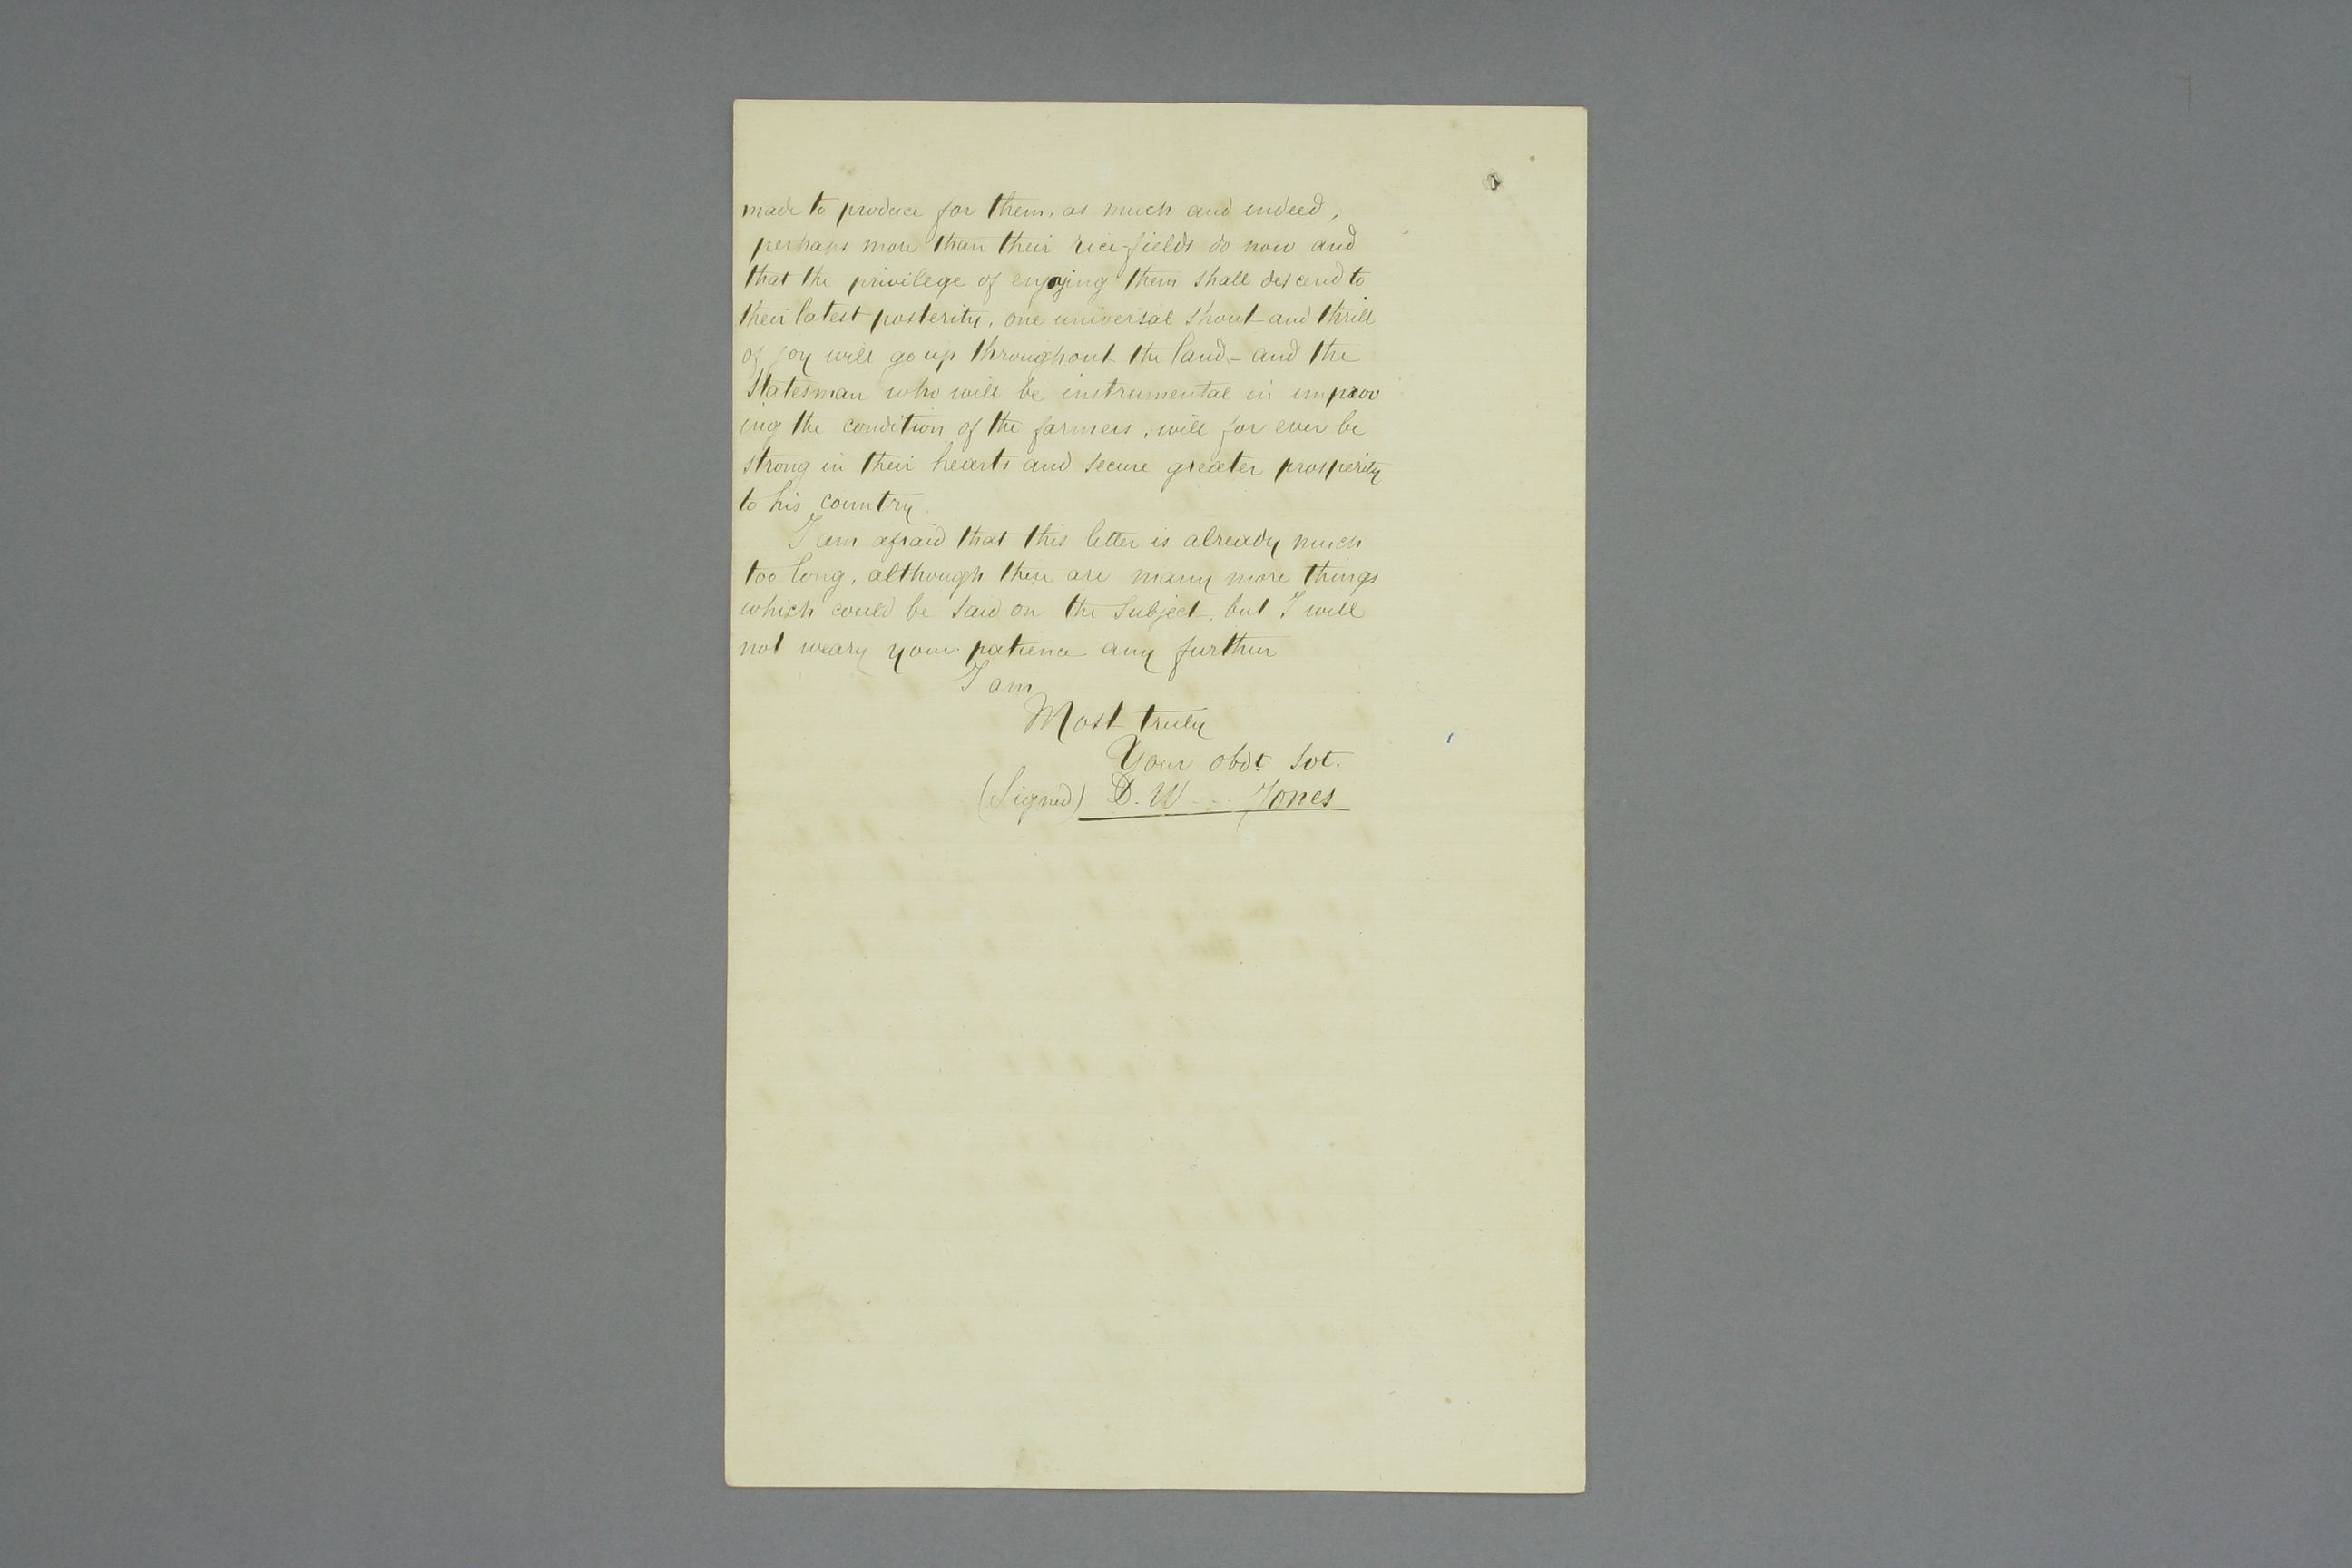 made to produce for them, as much and indeed,
perhaps more than their rice-fields do now and
that the privilege of enjoying them shall descend to
their latest posterity, one universal shout and thrill
of joy will go up throughout the land - and the
Statesman who will be instrumental in improv
ing the condition of the farmers, will for ever be
strong in their hearts and secure greater prosperity
to his country.
I am afraid that this letter is already much
too long, although there are many more things
which could be said on the subject, but I will
not weary your patience any further
I am
Most truly
Your obdt. Svt.
(Signed) D. W. Jones